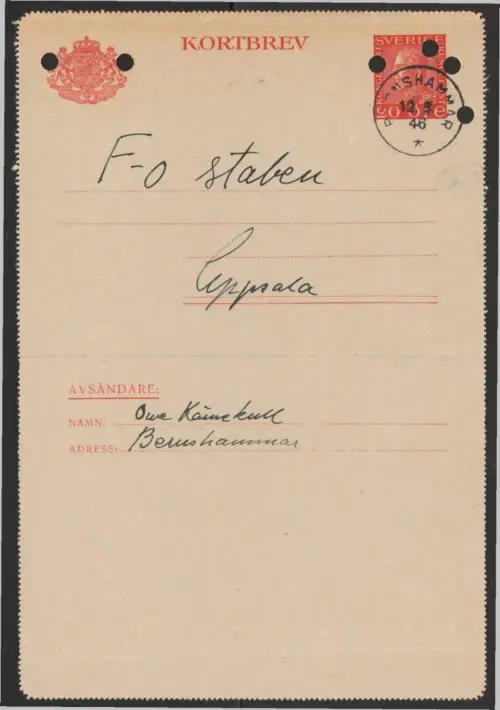 KORTBREV
SVERIGE
20 ÖRE
BERNSHAMMAR
12. 3
46
F-O staben
Uppsala
AVSÄNDARE:
NAMN: Owe
ADRESS: Bernshammar